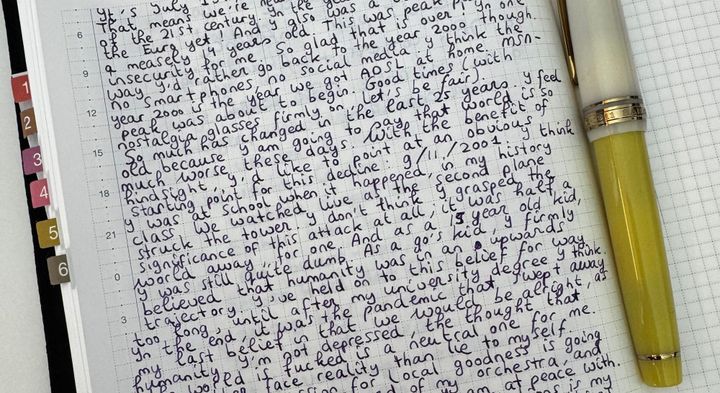 It's July 15
That means we're In the was a
of the 21st century. I also
the Euro yet! And I This was peak
a measely years old. over though.
insecurity for me. So glad that is
way I'd rather go back to the year 2000 I think the
no smartphones, no social media MSN-
year 2000 is the year we got ADSL at home.
peak was about to begin. Good times (with
nostalgia glasses firmly on, let's be fair).
So much has changed in the last 25 years. I feel
old because I am going to say that world is so
much worse these days. With the benefit of
hindsight, I'd like to point at an obvious
starting point for this decline: 9/11/2001. I think
I was at school when it happened, in my history
class. We watched live as the second plane
struck the tower. I don't think I grasped the
significance of this attack at all, it was half a
world away for one. And as a 15 year old kid,
I was still quite dumb. As a 90's kid, I firmly
believed that humanity was in an upwards
trajectory. I've held on to this belief for way
too long, until after my university degree I think.
In the end it was the pandemic that swept away
my last belief in that we would be alright, as
humanity. I'm not depressed, the thought that
the world is fucked is a neutral one for me.
face reality than lie to myself.
passion for local goodness is going
of my orchestra, and
I am at peace with
is my
6
9
12
15
18
21
0
3
1
2
3
4
5
6